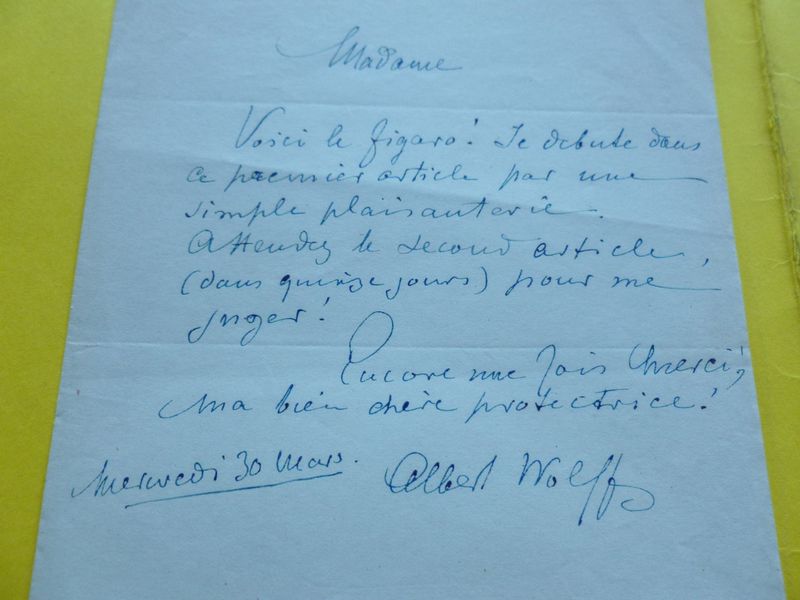 Madame
Voici le figaro! Je debute dans
ce premier article par une
simple plaisanterie.
Attendez le second article,
(dans quinze jours) pour me
juger!
Encore une fois merci,
ma bien chère protectrice!
Mercredi 30 Mars.
Albert Wolff